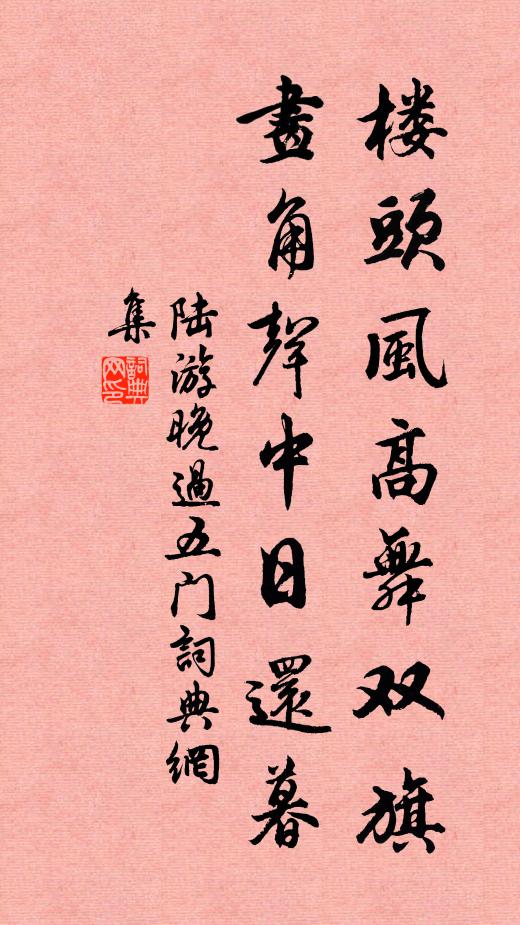 楼頭風高舞双旗
畫角聲中日還暮
陆游晚過五门詞典網
集
詞典
网印